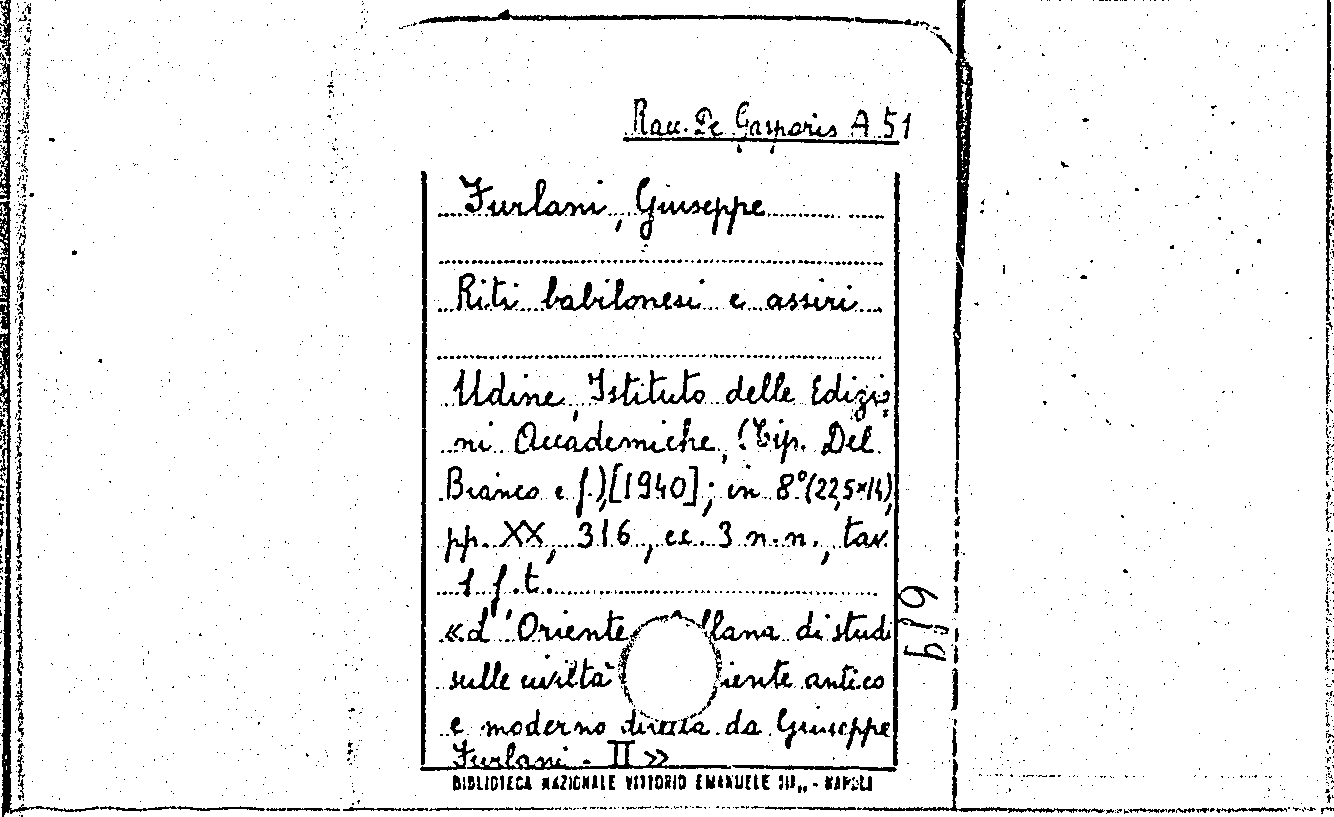 Racc. De Gasparis A 51
Furlani, Giuseppe
Riti babilonesi e assiri
Udine, Istituto delle Edizio
ni Accademiche, (Tip. Del
Bianco e f.), [1940]; in 8° (22,5×14),
pp. XX, 316, cc. 3 n.n., tav.
1 f.t.
«L'Oriente llana di studi
sulle civiltà iente antico
e moderno diretta da Giuseppe
Furlani - II»
BIBLIOTECA NAZIONALE VITTORIO EMANUELE III„ - NAPOLI